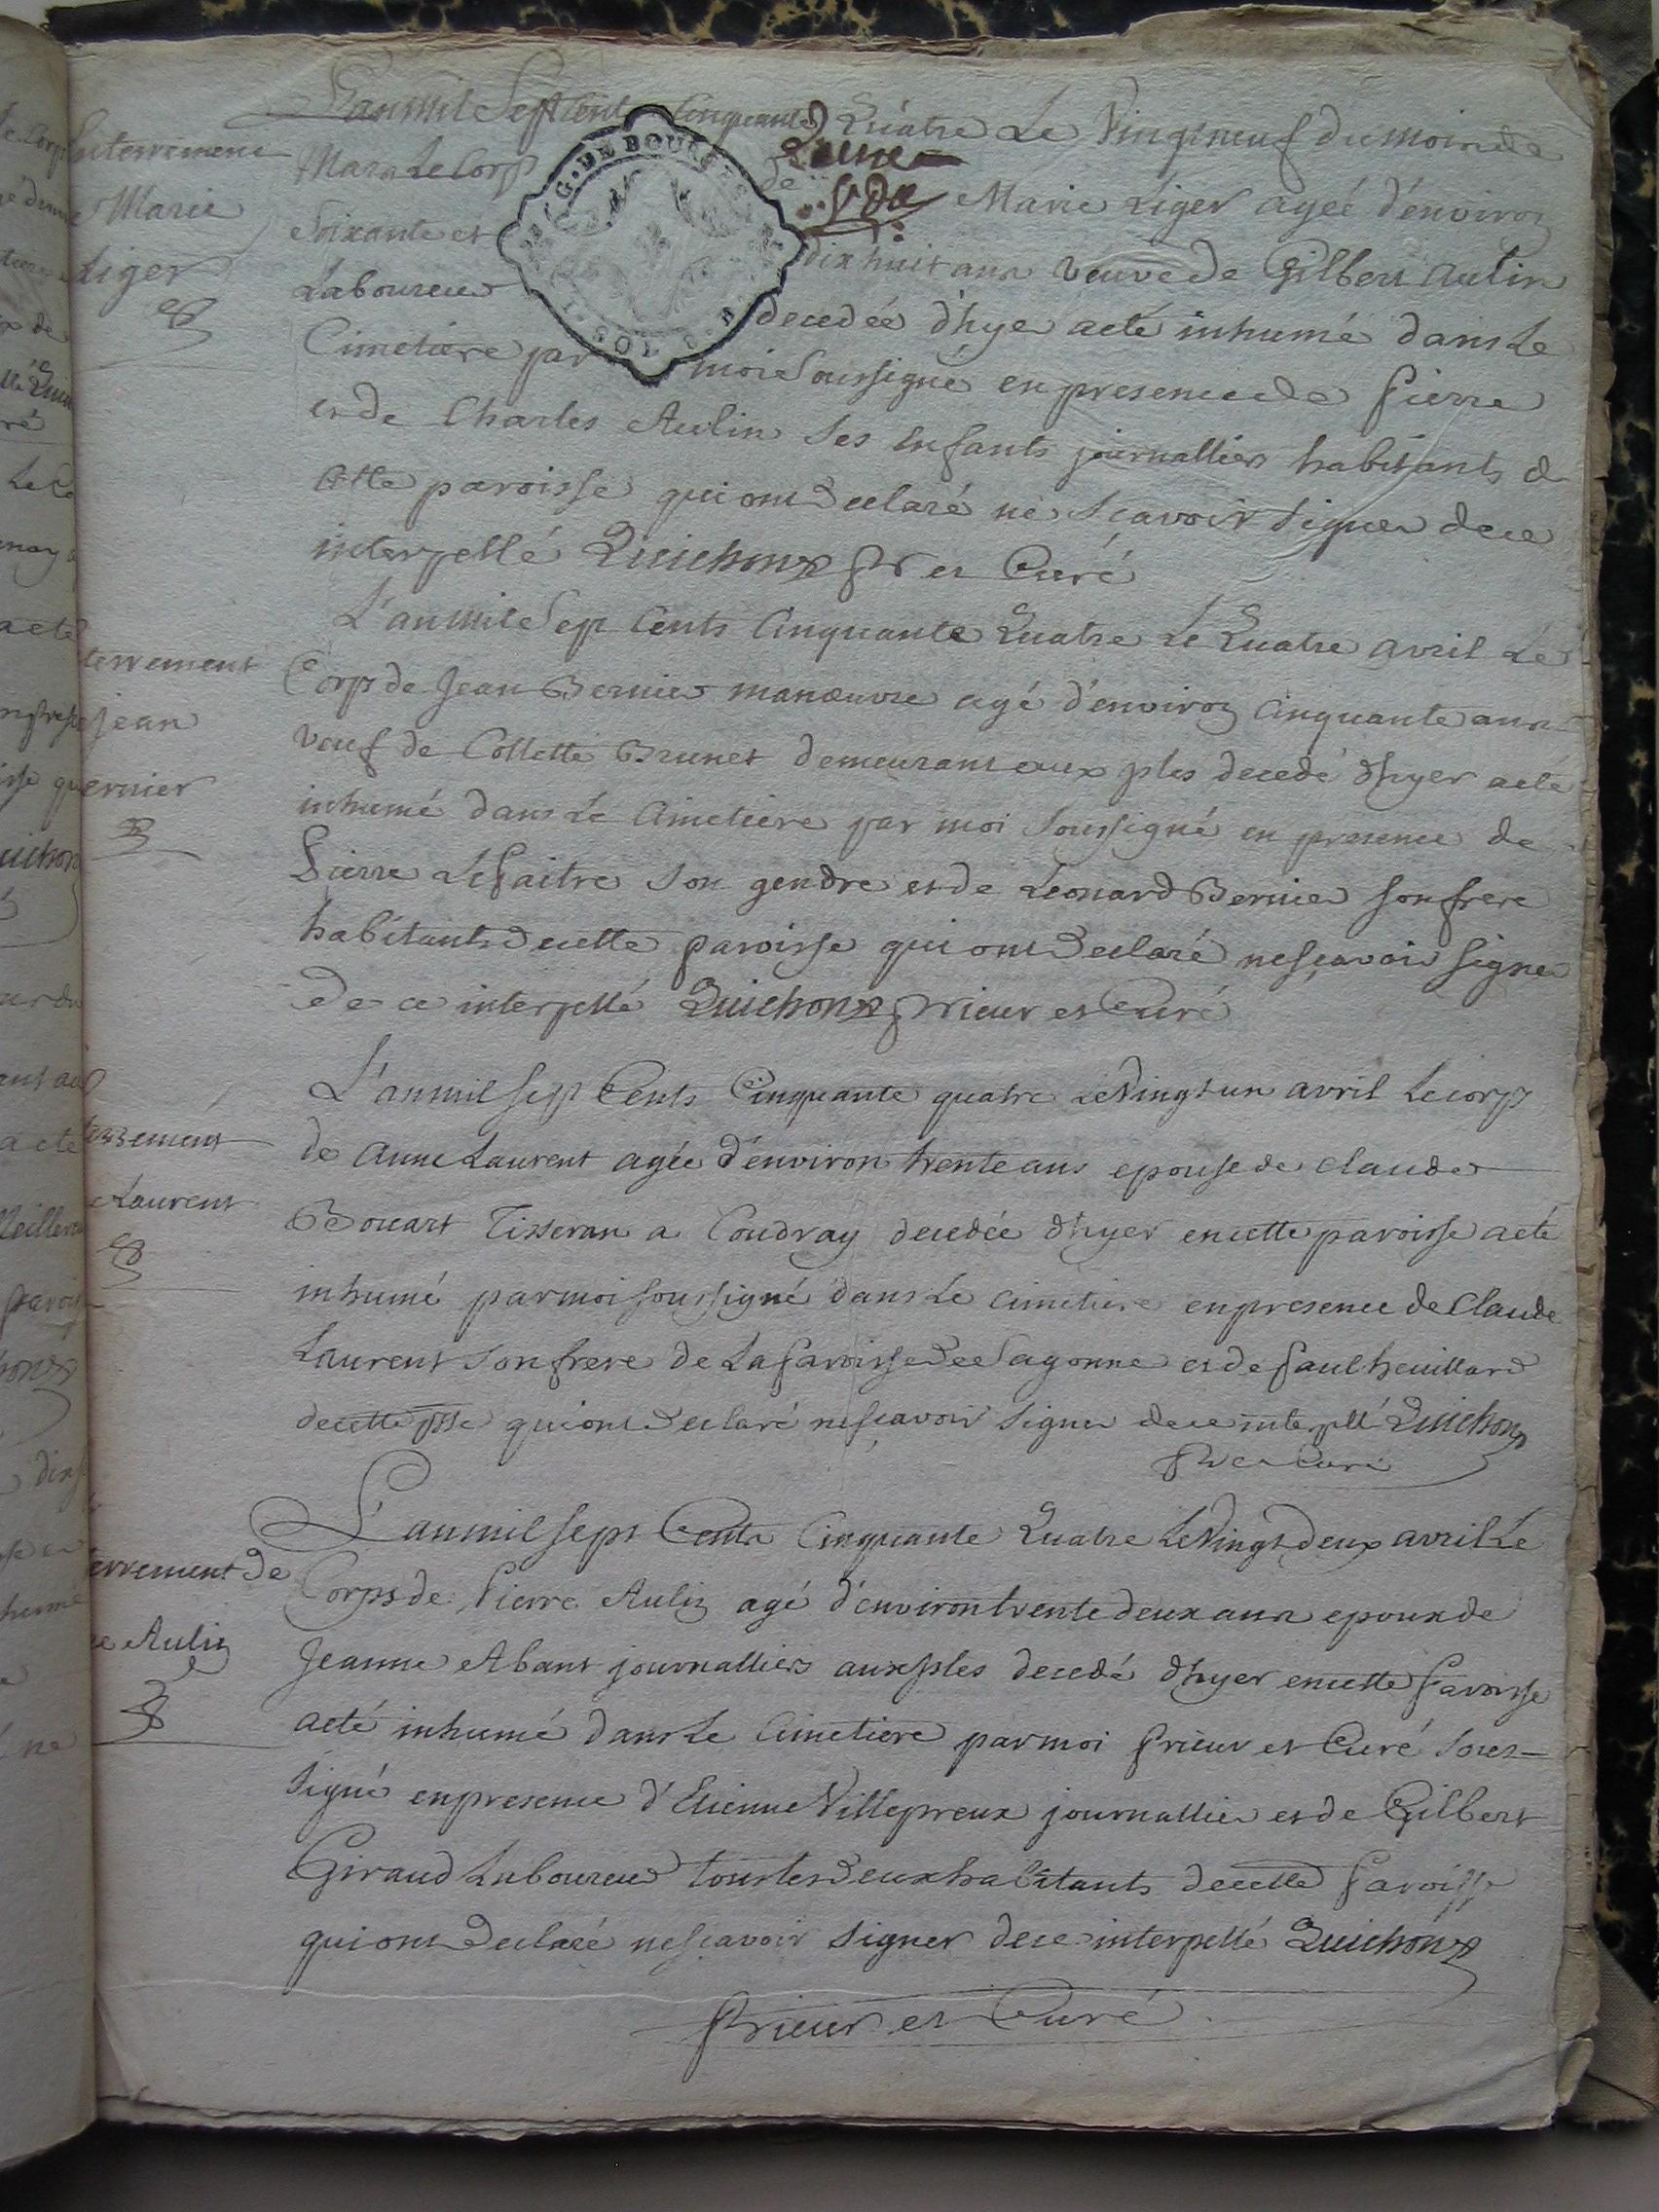 Enterrement
Marie
Liger
L'an mil Sept Cent Cinquante Quatre Le Vingt neuf du mois de
Mars Le Corp de Marie Liger agéé d'environ
G. DE BOURGES
SOL
Soixante et dix huit ans veuve de Gilbert Aulin
Laboureur decedéé d'hyer a eté inhumé dans Le
Cimetiere par moi Soussigné en presence de Pierre
et de Charles Aulin ses Enfants journalliers habitants de
Cette paroisse qui ont declaré ne Sçavoir Signer de ce
interpellé Quichon Pr et Curé
terrement
jean
ernier
L'an mil Sept Cents Cinquante Quatre Le Quatre avril Le
Corps de Jean Bernier manœuvre agé d'environ Cinquante ans
veuf de Collette Brunet demeurant aux ples decedé d'hyer a eté
inhumé dans Le Cimetiere par moi Soussigné en presence de
Pierre LePaitre Son gendre et de Leonard Bernier son frere
habitants de cette paroisse qui ont declaré ne sçavoir signer
de ce interpellé Quichon Prieur et Curé
errement
Laurent
L'an mil sept Cents Cinquante quatre Le Vingt un avril Le corps
de Anne Laurent agée d'environ trente ans epouse de Claude
Bouart Tisseran a Coudray decedée d'hyer en cette paroisse a eté
inhumé par moi soussigné dans Le cimetiere en presence de Claude
Laurent Son frere de La Paroisse de Sagonne et de Paul heuillard
de cette psse qui ont declaré ne sçavoir Signer de ce interpellé Quichon
Pr et Curé
errement de
re Aulin
L'an mil sept Cents Cinquante Quatre Le Vingt deux avril Le
Corps de Pierre Aulin agé d'environ trente deux ans epoux de
Jeanne Abant journalliers aux ples decedé d'hyer en cette Paroisse
a eté inhumé dans Le Cimetiere par moi Prieur et Curé Sous-
signé en presence d'Etienne Villepreux journallier et de Gilbert
Giraud Laboureur tous les deux habitants de cette Paroisse
qui ont declaré ne sçavoir Signer de ce interpellé Quichon
Prieur et Curé